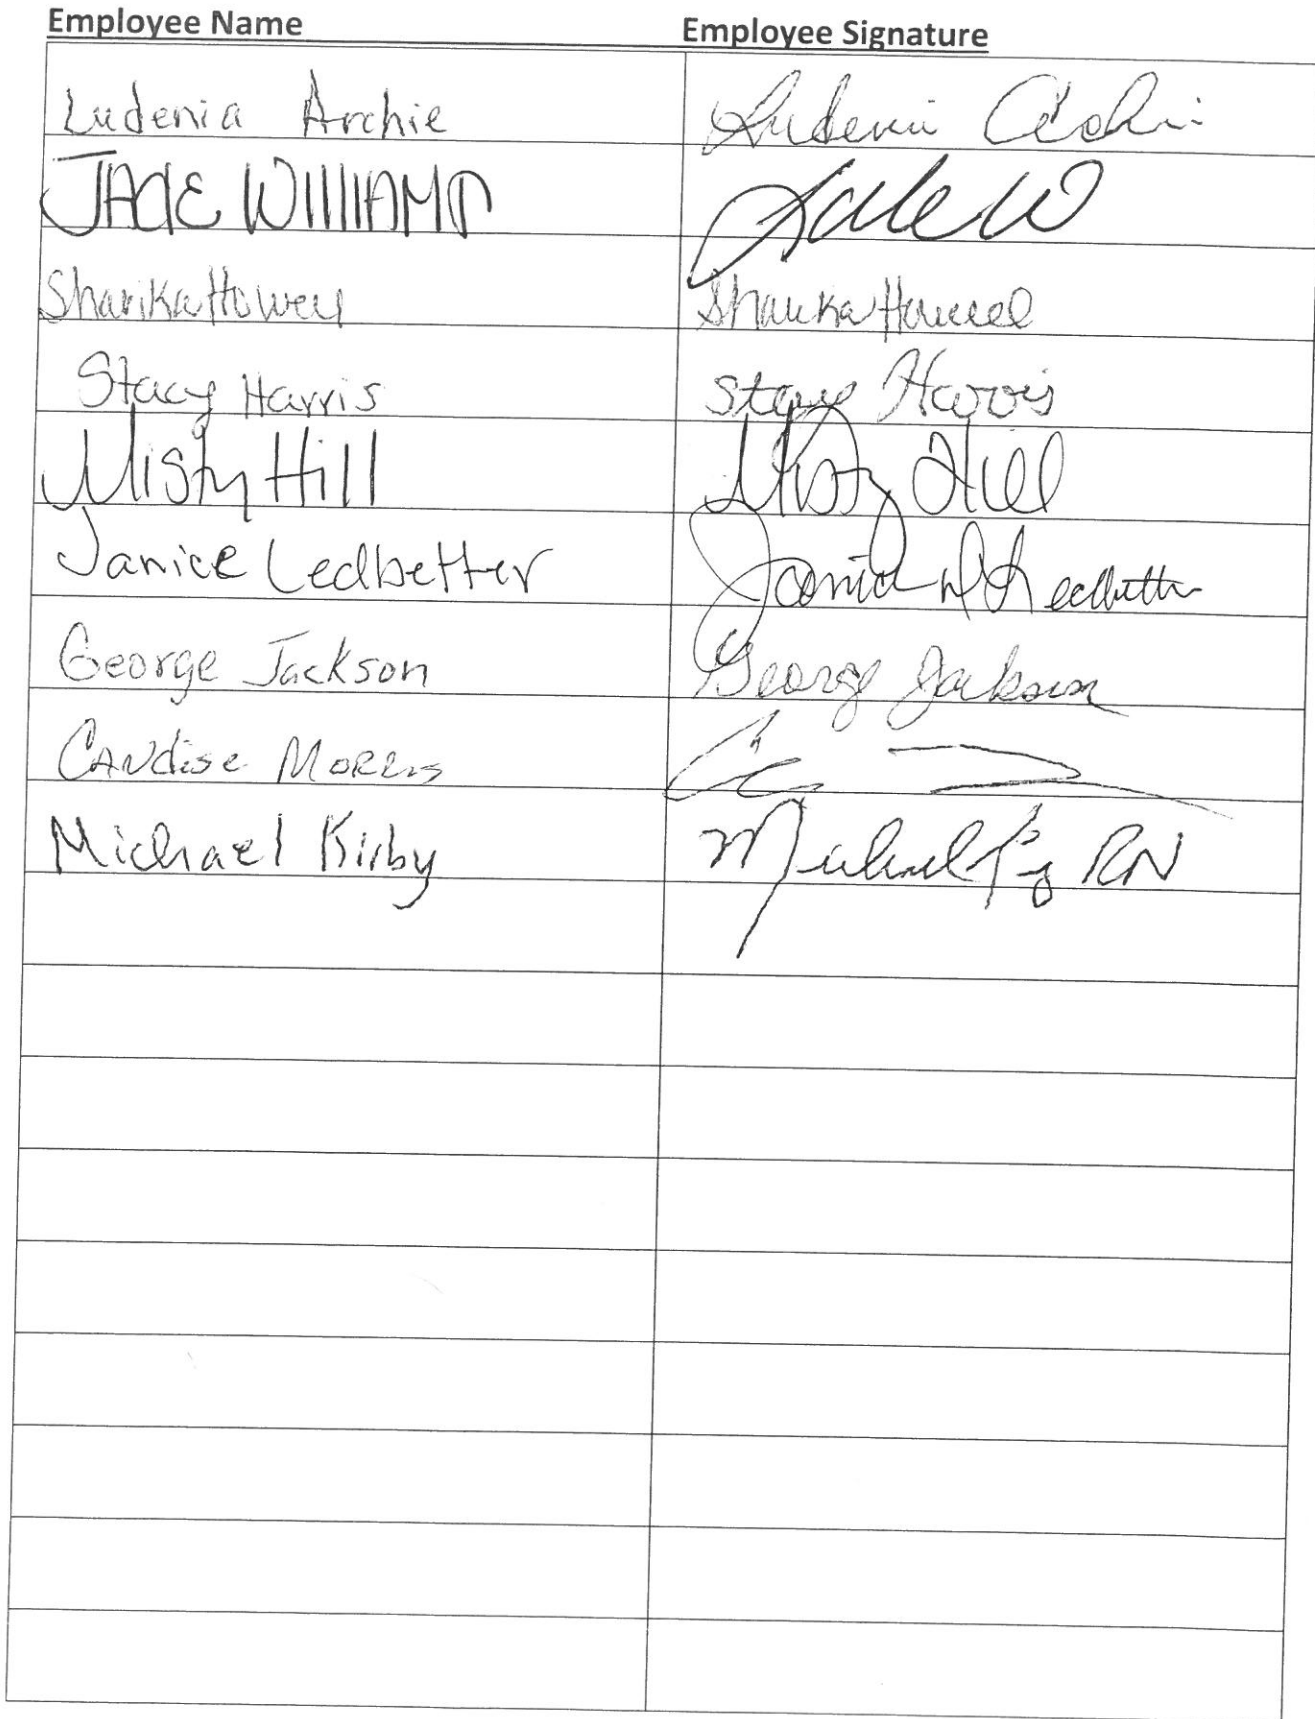 Employee Name Employee Signature
Ludenia Archie Ludenia Archie
JADE WILLIAMS Jade W
Sharika Howell Sharika Howell
Stacy Harris Stacy Harris
Misty Hill Misty Hill
Janice Ledbetter Janice Ledbetter
George Jackson George Jackson
Candise Morris
Michael Kirby Michael RN